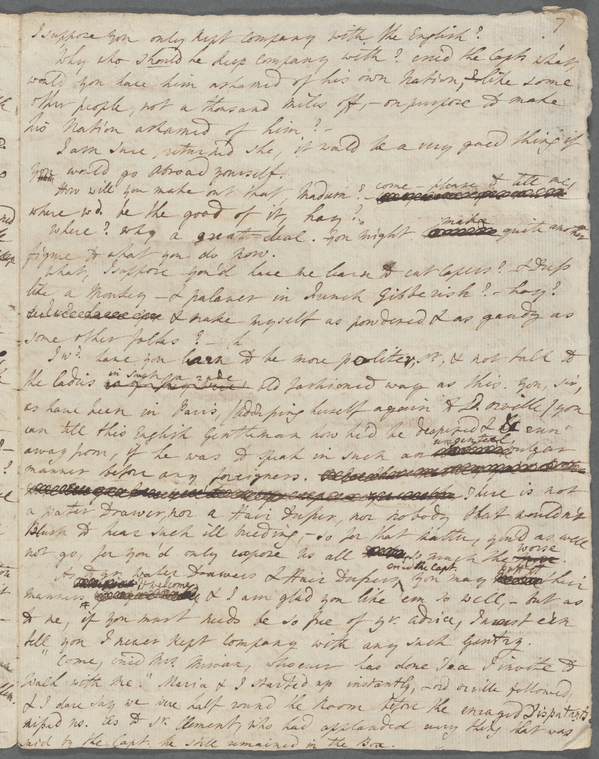 7
I suppose you only kept company with the English?
"Why who should he keep company with? cried the Capt. what
would you have him ashamed of his own Nation, like some
other people, not a thousand miles off, – on purpose to make
his Nation ashamed of him? –
I am sure, returned she, it would be a very good thing if
you would go abroad yourself.
How will you make out that Madam? come – please to tell me,
where wd. be the good of it, hay?
Where? why a great deal. you might make quite another
figure to what you do now.
What, I suppose you'd have me learn to cut capers? – & dress
like a Monkey – & palaver in French Gibberish? – hay?
& make myself as powdered & as gaudy as
some other folks? –
I wd. have you learn to be more politer, Sr, & not talk to
the ladies in such a rude old fashioned way as this. You, Sir,
as have been in Paris, (addressing herself again to Ld. Orville) you
can tell this English Gentleman how he'd be despised & run
away from, if he was to speak in such an ungenteel vulgar
manner before any foreigners. There is not
a pater Drawer, nor a Hair Dresser, nor nobody that wouldn't
blush to hear such ill breeding, – so for that matter, you'd as well
not go, for you'd only expose us all so much the worse
water Drawers & Hair Dressers, cried the Capt. you may their
manners & welcome & I am glad you like 'em so well, – but as
to me, if you must needs be so free of yr. advice, I must e'en
tell you I never kept company with any such Gentry.
"Come, cried Mrs. Mirvan, whoever has done Tea I invite to
walk with me." Maria & I started up instantly, – Lord Orville followed,
& I dare say we were half round the Room before the enraged Disputants
missed us. As to Sr. Clement, who had applauded every thing that was
said by the Capt. he still remained in the Box.